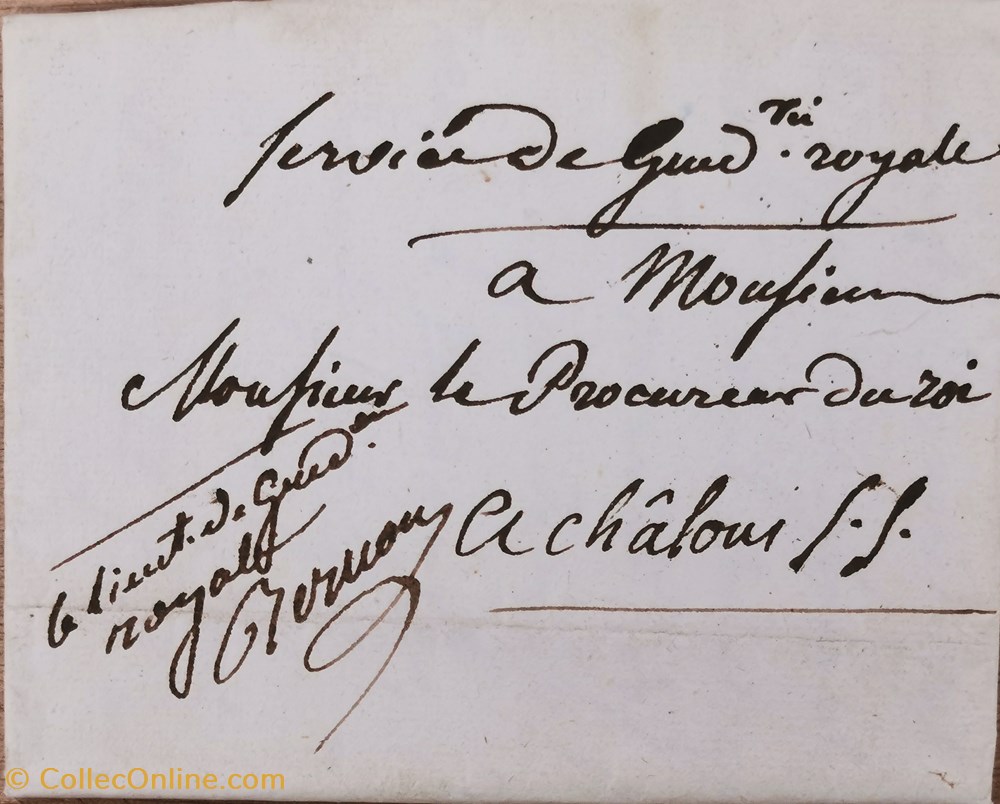 Service de Gend.rie royale
a Monsieur
Monsieur le Procureur du roi
A châlons S. S.
le lieut. de Gend.rie
royale
© CollecOnline.com